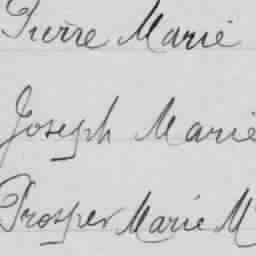 Pierre Marie
Joseph Marie
Prosper Marie M